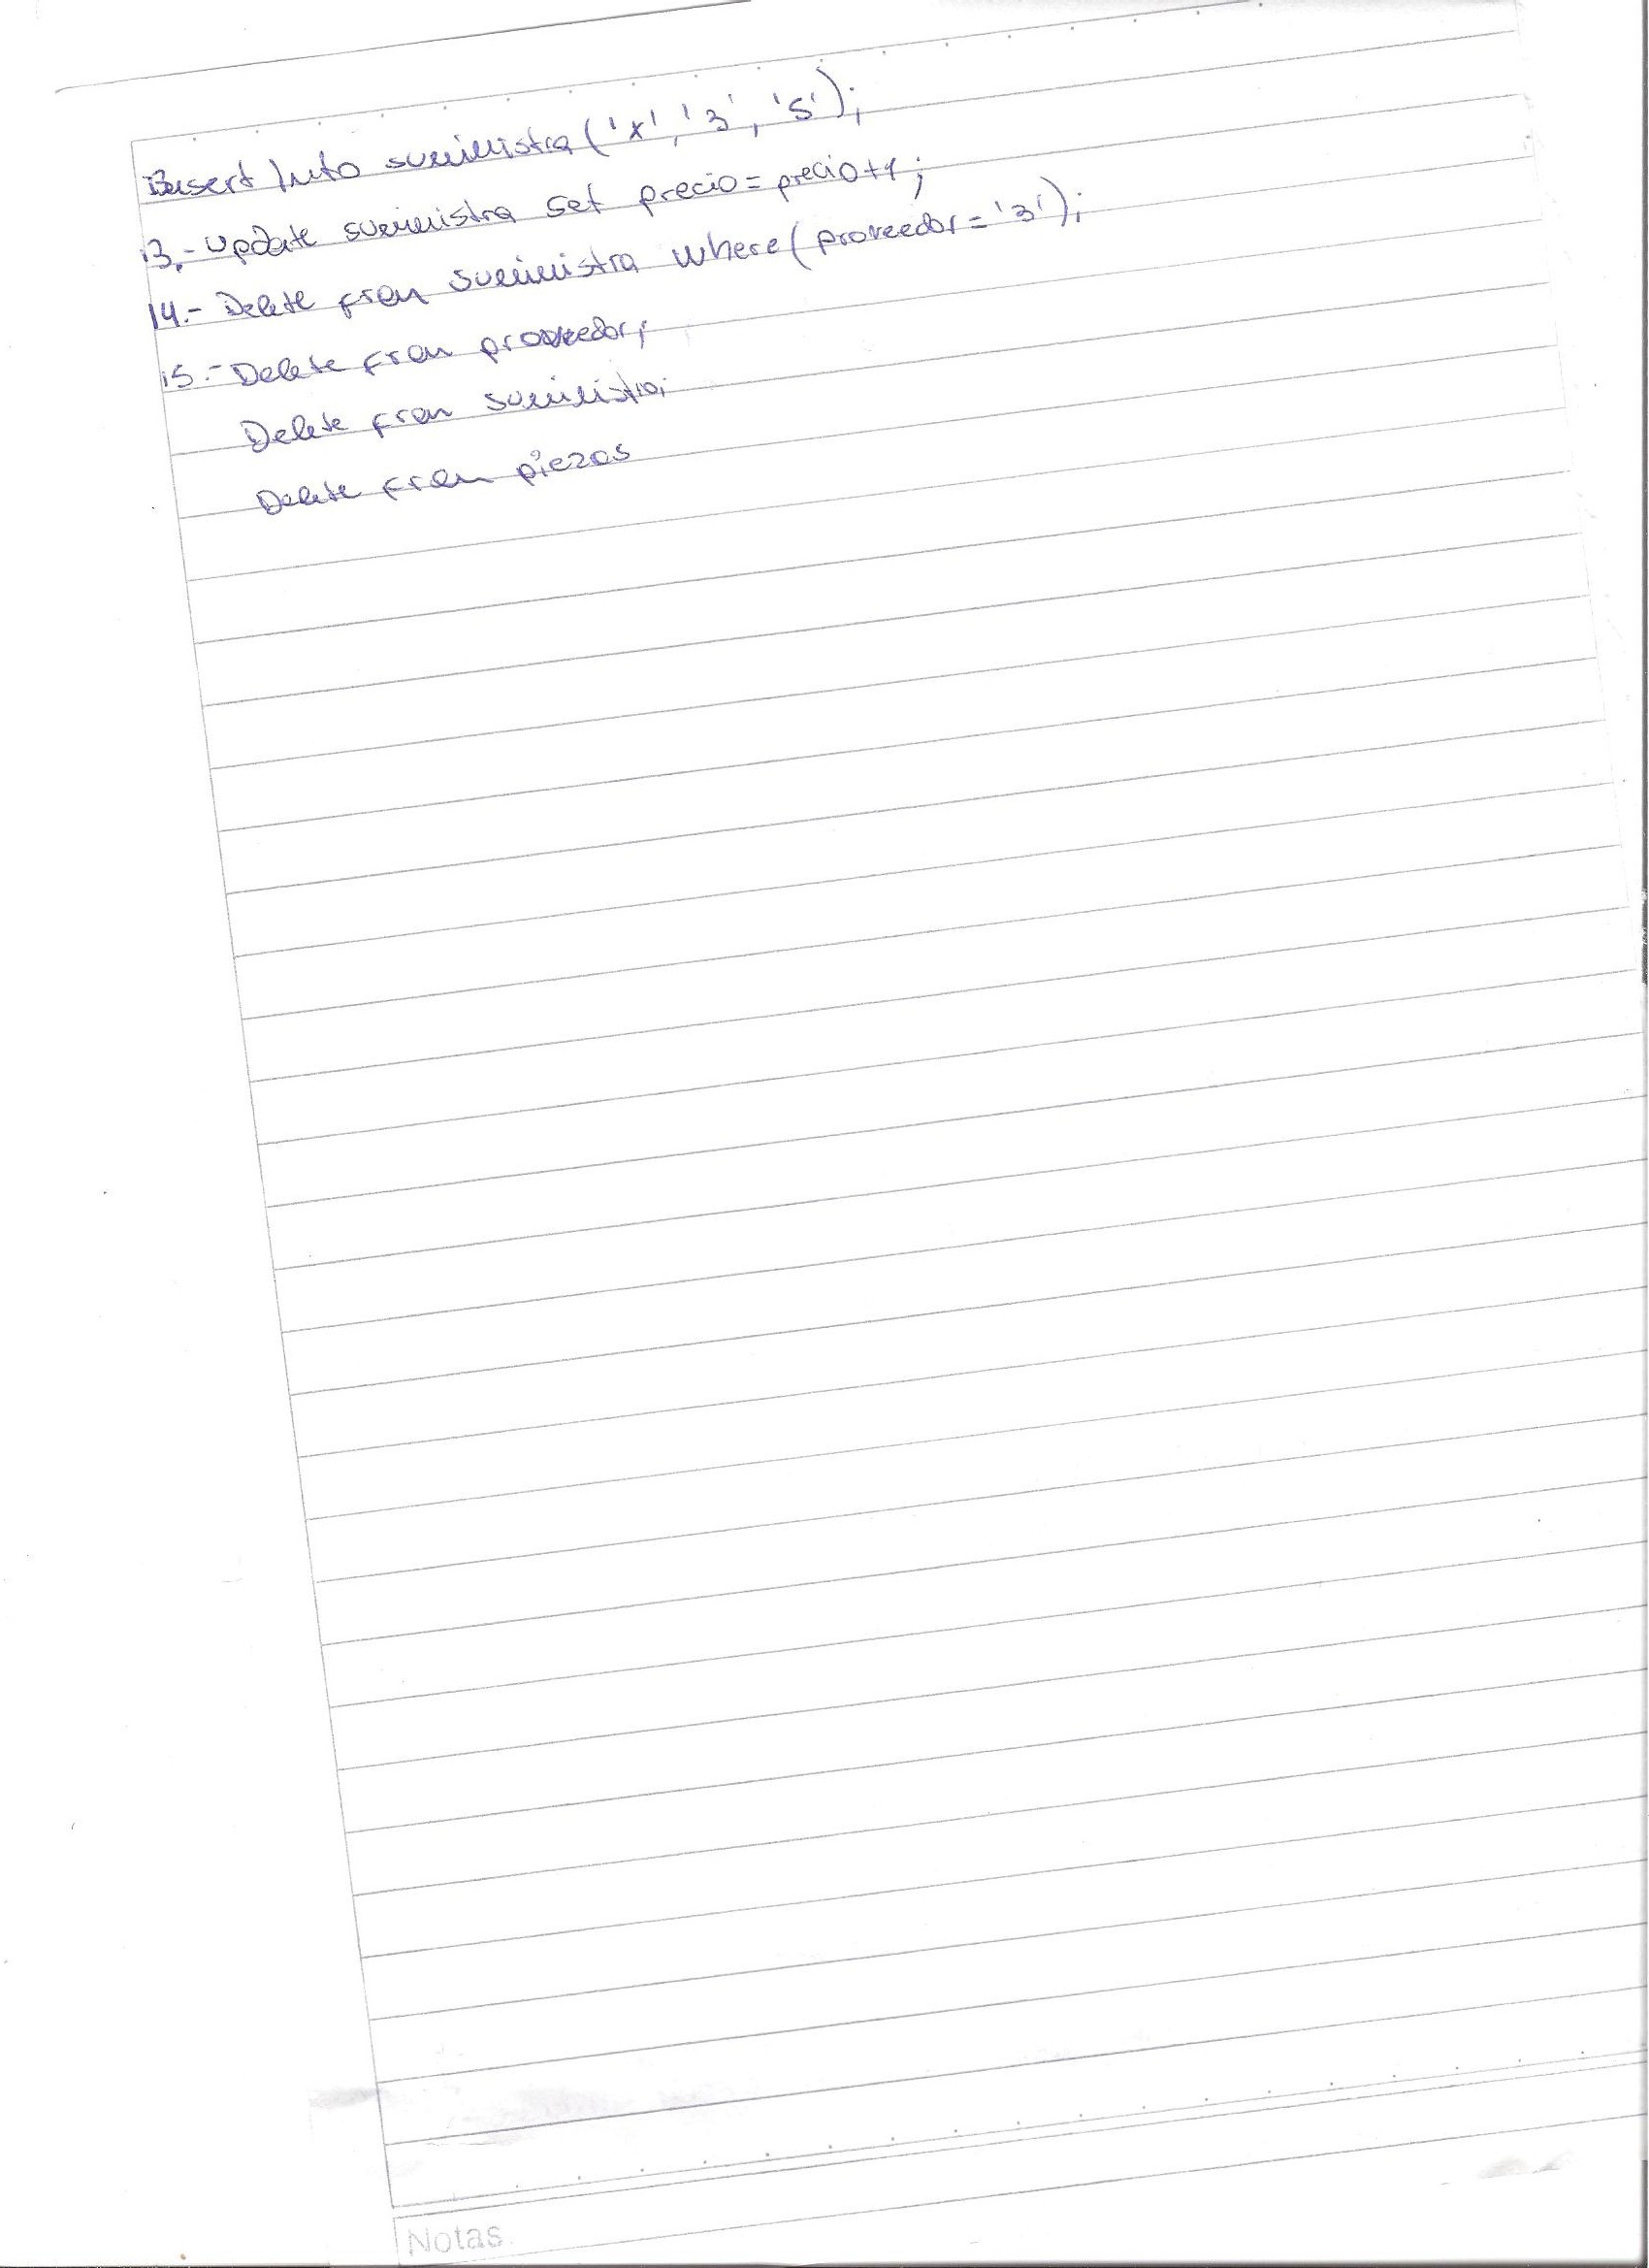 Insert Into suministra ('x', '3', '5');
13.- Update suministra set precio = precio+1;
14.- Delete from suministra where (proveedor = '3');
15.- Delete from proveedor;
Delete from suministra;
Delete from piezas
Notas